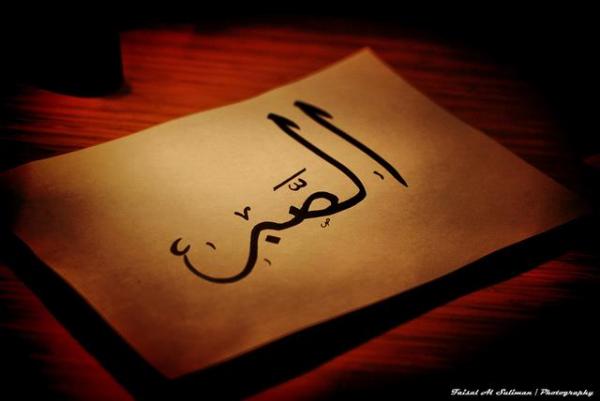 الصَّبر
Faisal Al Suliman | Photography